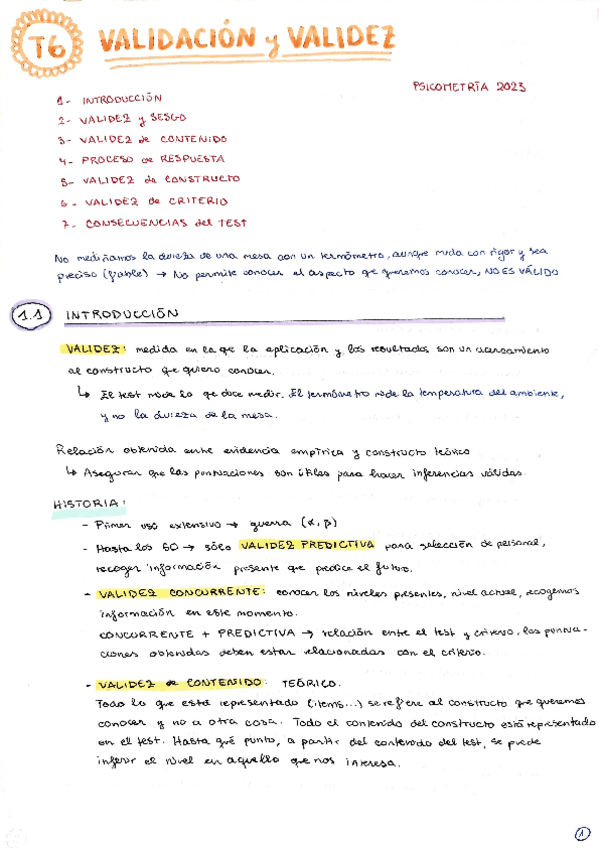 T6 VALIDACIÓN y VALIDEZ
PSICOMETRÍA 2023
1- INTRODUCCIÓN
2- VALIDEZ y SESGO
3- VALIDEZ de CONTENIDO
4- PROCESO de RESPUESTA
5- VALIDEZ de CONSTRUCTO
6- VALIDEZ de CRITERIO
7- CONSECUENCIAS del TEST
No mediríamos la dureza de una mesa con un termómetro, aunque mida con rigor y sea
preciso (fiable) → No permite conocer el aspecto que queremos conocer, NO ES VÁLIDO
1.1 INTRODUCCIÓN
VALIDEZ: medida en la que la aplicación y los resultados son un acercamiento
al constructo que quiero conocer.
↳ El test mide lo que dice medir. El termómetro mide la temperatura del ambiente,
y no la dureza de la mesa.
Relación obtenida entre evidencia empírica y constructo teórico
↳ Asegurar que las puntuaciones son útiles para hacer inferencias válidas.
HISTORIA:
- Primer uso extensivo → guerra (α, β)
- Hasta los 50 → sólo VALIDEZ PREDICTIVA para selección de personal,
recoger información presente que predice el futuro.
- VALIDEZ CONCURRENTE: conocer los niveles presentes, nivel actual, recogemos
información en este momento.
CONCURRENTE + PREDICTIVA → relación entre el test y criterio, las puntua-
ciones obtenidas deben estar relacionadas con el criterio.
- VALIDEZ de CONTENIDO: TEÓRICO.
Todo lo que está representado (ítems...) se refiere al constructo que queremos
conocer y no a otra cosa. Todo el contenido del constructo está representado
en el test. Hasta qué punto, a partir del contenido del test, se puede
inferir el nivel en aquello que nos interesa.
1